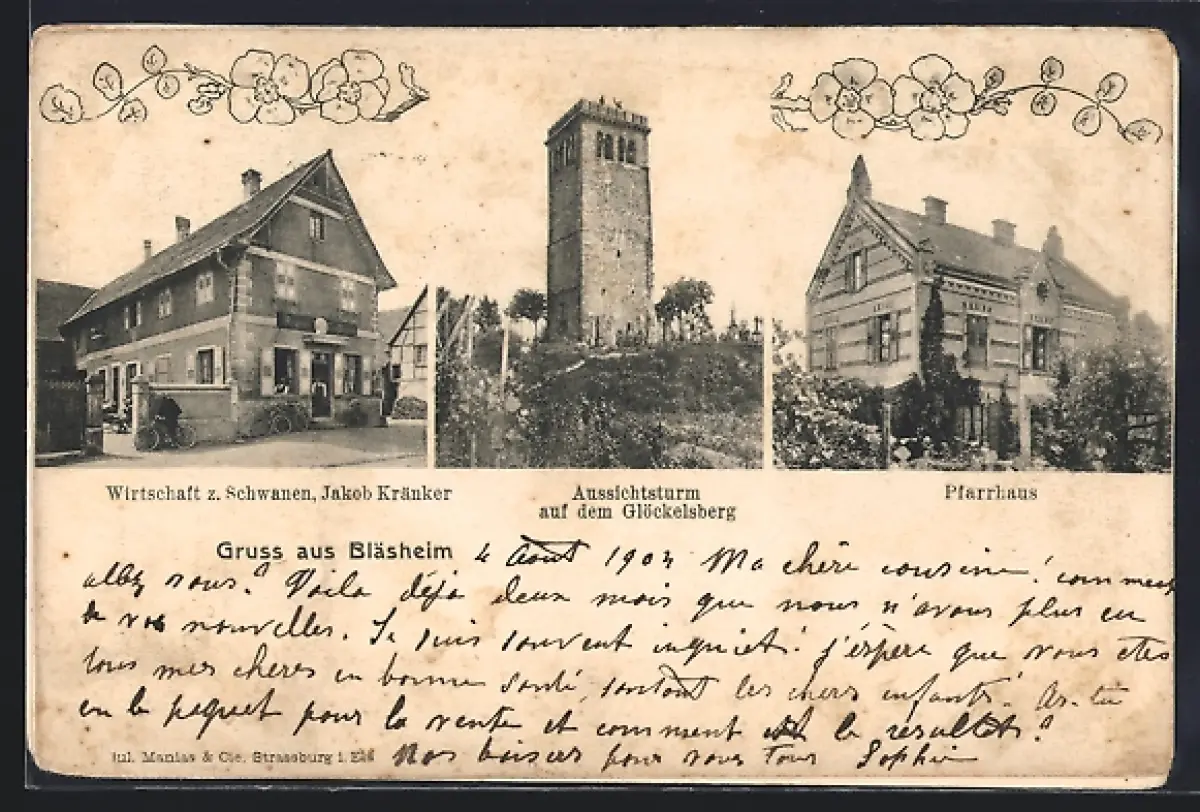 Wirtschaft z. Schwanen, Jakob Kränker
Aussichtsturm
auf dem Glöckelsberg
Pfarrhaus
Gruss aus Bläsheim 4 Août 1904 Ma chère cousine! comment
allez vous? Voila déja deux mois que nous n'avons plus eu
de vos nouvelles. Je suis souvent inquiète! j'éspère que vous êtes
tous mes chères en bonne santé, surtout les chers enfants! As-tu
eu le paquet pour la vente et comment est le résultat?
Nos baisers pour vous tous Sophie
Jul. Manias & Cie. Strassburg i. Els